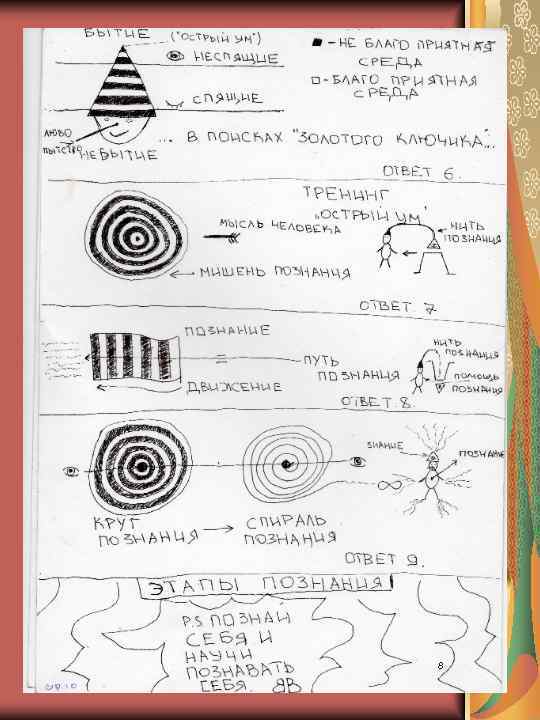 БЫТИЕ ("ОСТРЫЙ УМ")
НЕСПЯЩИЕ
СПЯЩИЕ
- НЕ БЛАГОПРИЯТНАЯ
СРЕДА
- БЛАГОПРИЯТНАЯ
СРЕДА
ЛЮБО
ПЫТСТВО
НЕБЫТИЕ
... В ПОИСКАХ "ЗОЛОТОГО КЛЮЧИКА"...
ОТВЕТ 6.
ТРЕНИНГ
„ОСТРЫЙ УМ"
МЫСЛЬ ЧЕЛОВЕКА
НИТЬ
ПОЗНАНИЯ
МИШЕНЬ ПОЗНАНИЯ
ОТВЕТ 7
ПОЗНАНИЕ
=
ПУТЬ
ПОЗНАНИЯ
ДВИЖЕНИЕ
НИТЬ
ПОЗНАНИЯ
ПОМОЩЬ
ПОЗНАНИЯ
ОТВЕТ 8.
ЗНАНИЕ
ПОЗНАНИЕ
∞
КРУГ
ПОЗНАНИЯ
СПИРАЛЬ
ПОЗНАНИЯ
ОТВЕТ 9.
ЭТАПЫ ПОЗНАНИЯ!
P.S ПОЗНАЙ
СЕБЯ И
НАУЧИ
ПОЗНАВАТЬ
СЕБЯ.
8